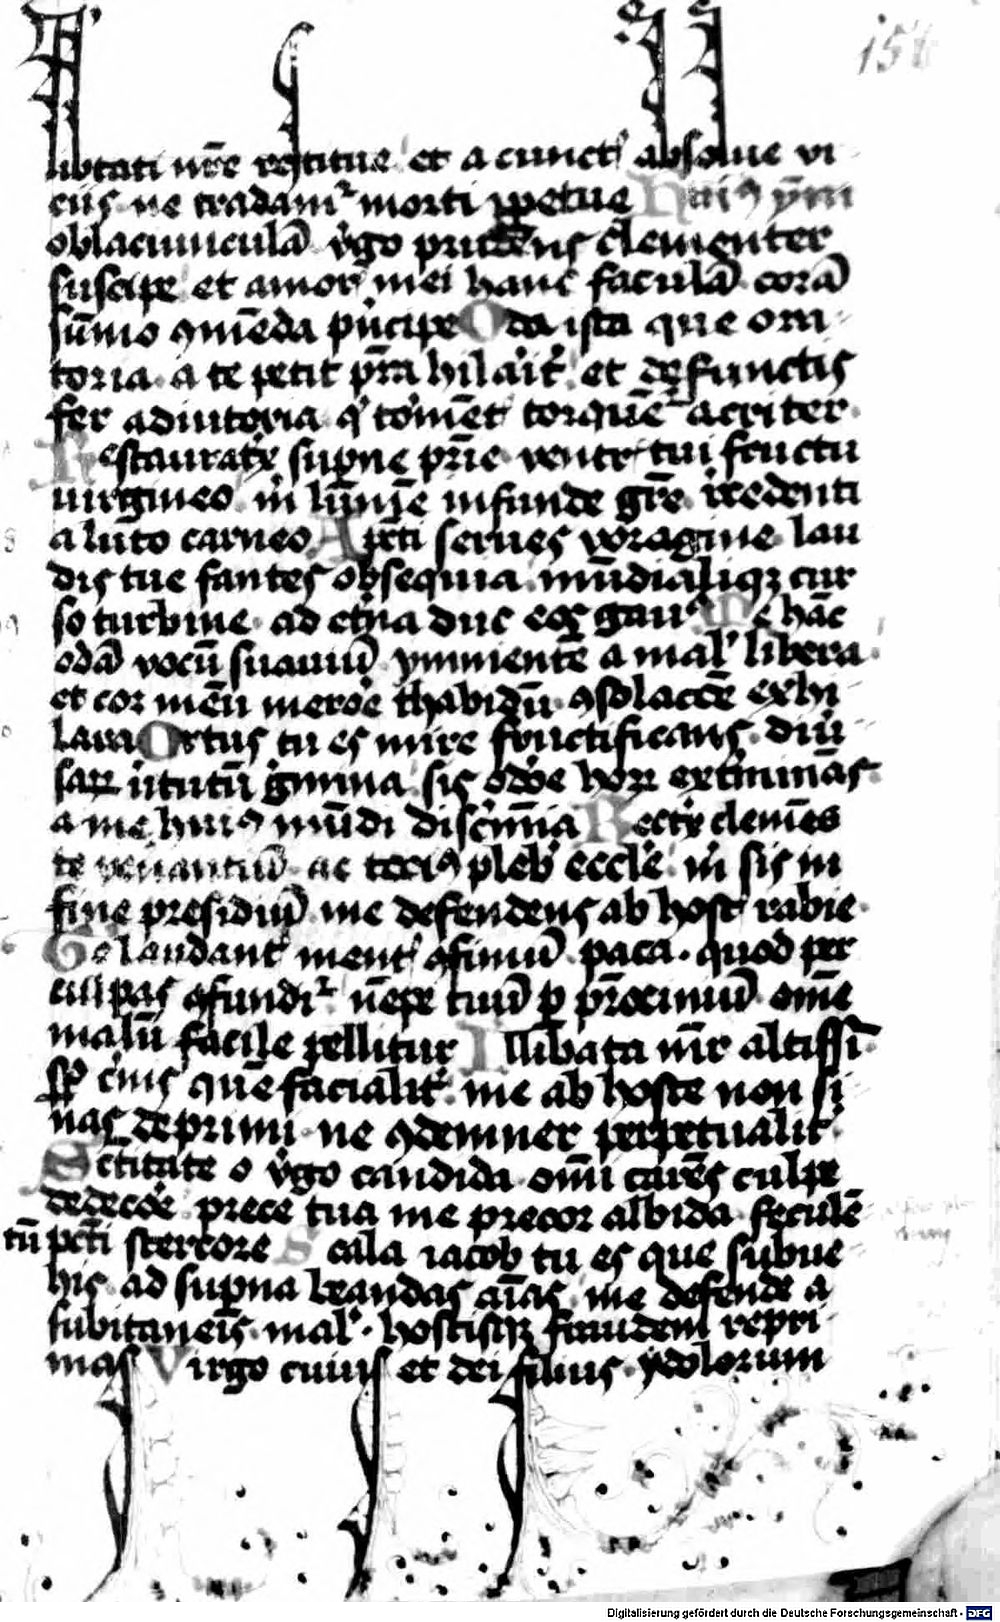 156
libtati nrē restitue et a cunct absolue vi
ciis ne tradam morti ꝑpetue huiꝯ ȳm
oblaciunculā vgo prudens clementer
suscipe et amor mei hanc faculā corā
sūmo ꝯmēda pⁱncipe Oda ista que ora
toria a te petit pctā hilarit et defunctis
fer adiutoria q tomēt torquēt acriter
Restauratⁱx supne prīe ventr tui fructu
uirgineo m lūmīe infunde grē credenti
a luto carneo A pcti serues voragine lau
dis tue fantes obsequia mūdialiqꝫ cur
so turbine ad etna duc eoꝝ gau me hāc
odā vocū suauiū ymniente a mal libera
et cor mēū merore thabidū ꝯsolaccōe exhi
lara Ortus tu es mire fructificans diu
saꝝ ututū gmina sis odore hoꝝ extminās
a me huiꝯ mūdi discⁱmīa Rectⁱx clemēs
te venantiū ac tociꝯ pleb eccle m sis in
fine presidiū me defendens ab host rabie
Te laudant ment ꝯfimū paca. quod per
culpas ꝯfundit nēpe tuū ꝑ prōciniū omē
malū facile pellitur Illibata mr altissi
sp cuiꝯ quē facialit me ab hoste non si
nas deprimi ne ꝯdemner perpetualit
Sctitate o vgo candida omī carēs culpe
dedecōe prece tua me precor albida feculē
tū pcti stercore Scala iacob tu es que subue
his ad supna leandas aīas me defende a
subitaneis mal. hostisqꝫ fraudem repri
mas Virgo cuius et dei filius ydolorum
Digitalisierung gefördert durch die Deutsche Forschungsgemeinschaft - DFG